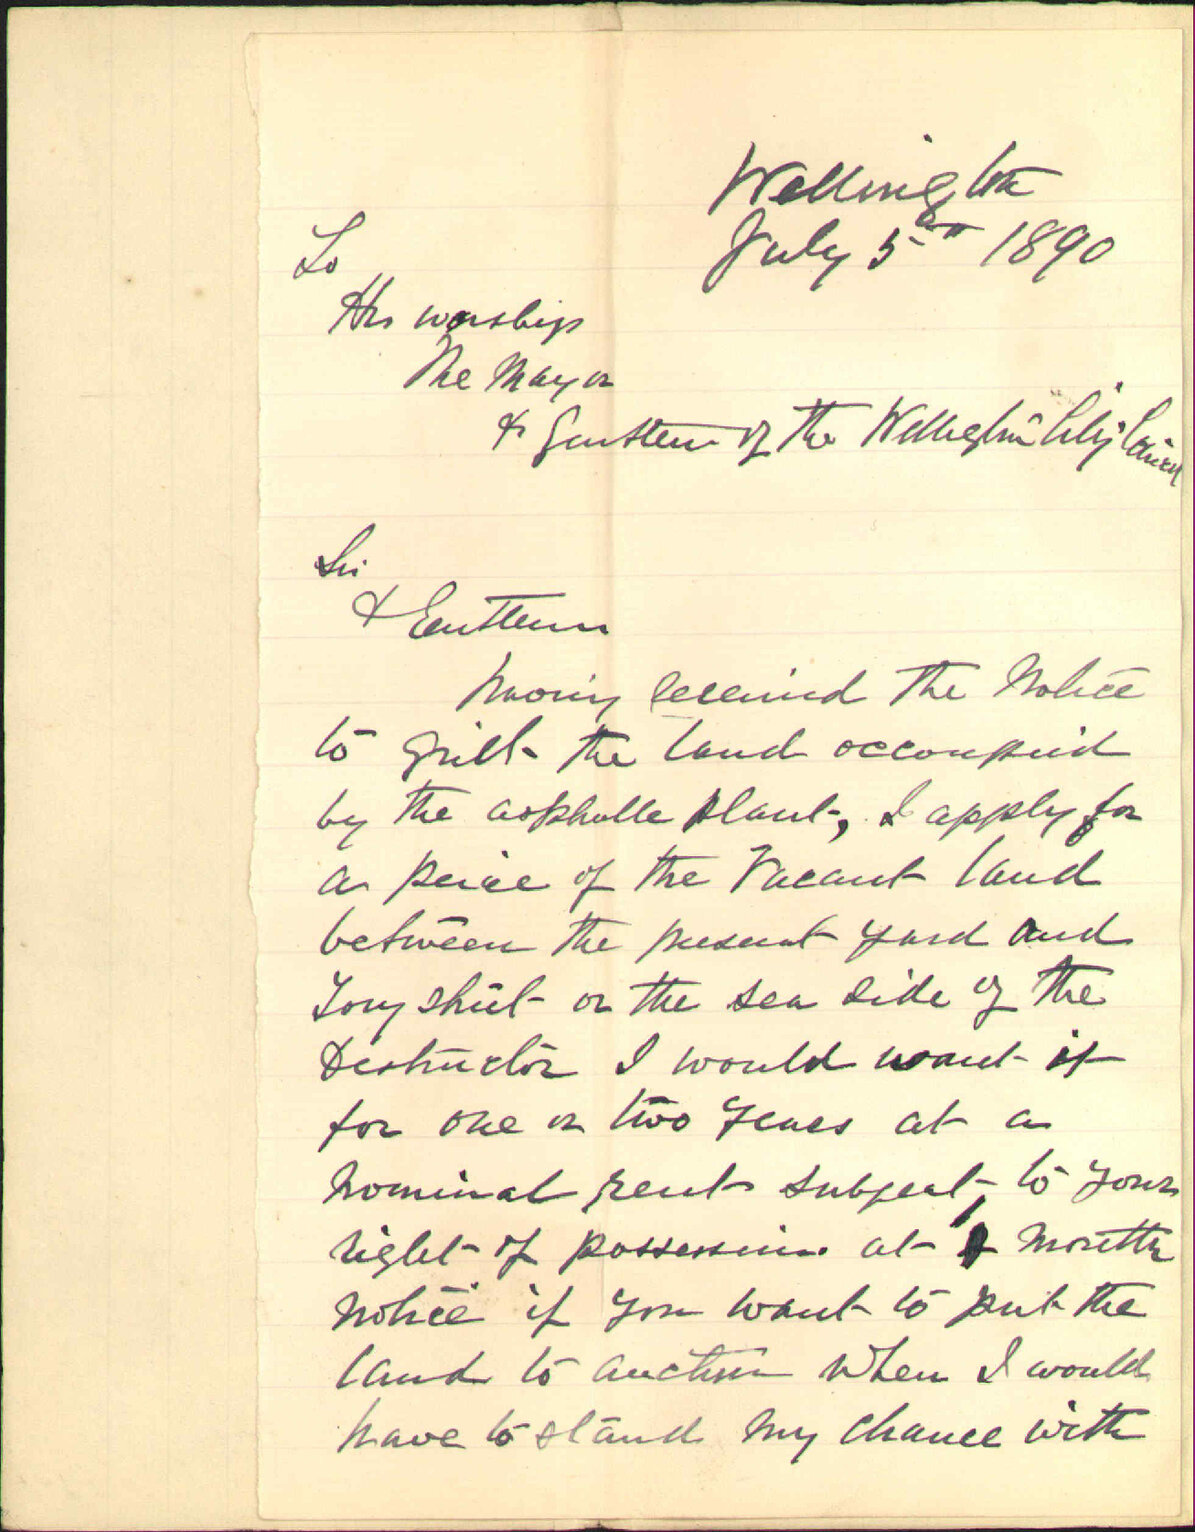 Wellington
July 5th 1890
To
His worship
The Mayor
& Gentlemen of the Wellington City Council
Sir
& Gentlemen
Having received the Notice
to quit the land occoupied
by the asphalte plant, I apply for
a peice of the Vacant land
between the present yard and
Tory street or the sea side of the
Destructor I would want it
for one or two years at a
nominal rent subject, to your
right of possession at months
Notice if you want to put the
land to auction when I would
have to stand my chance with